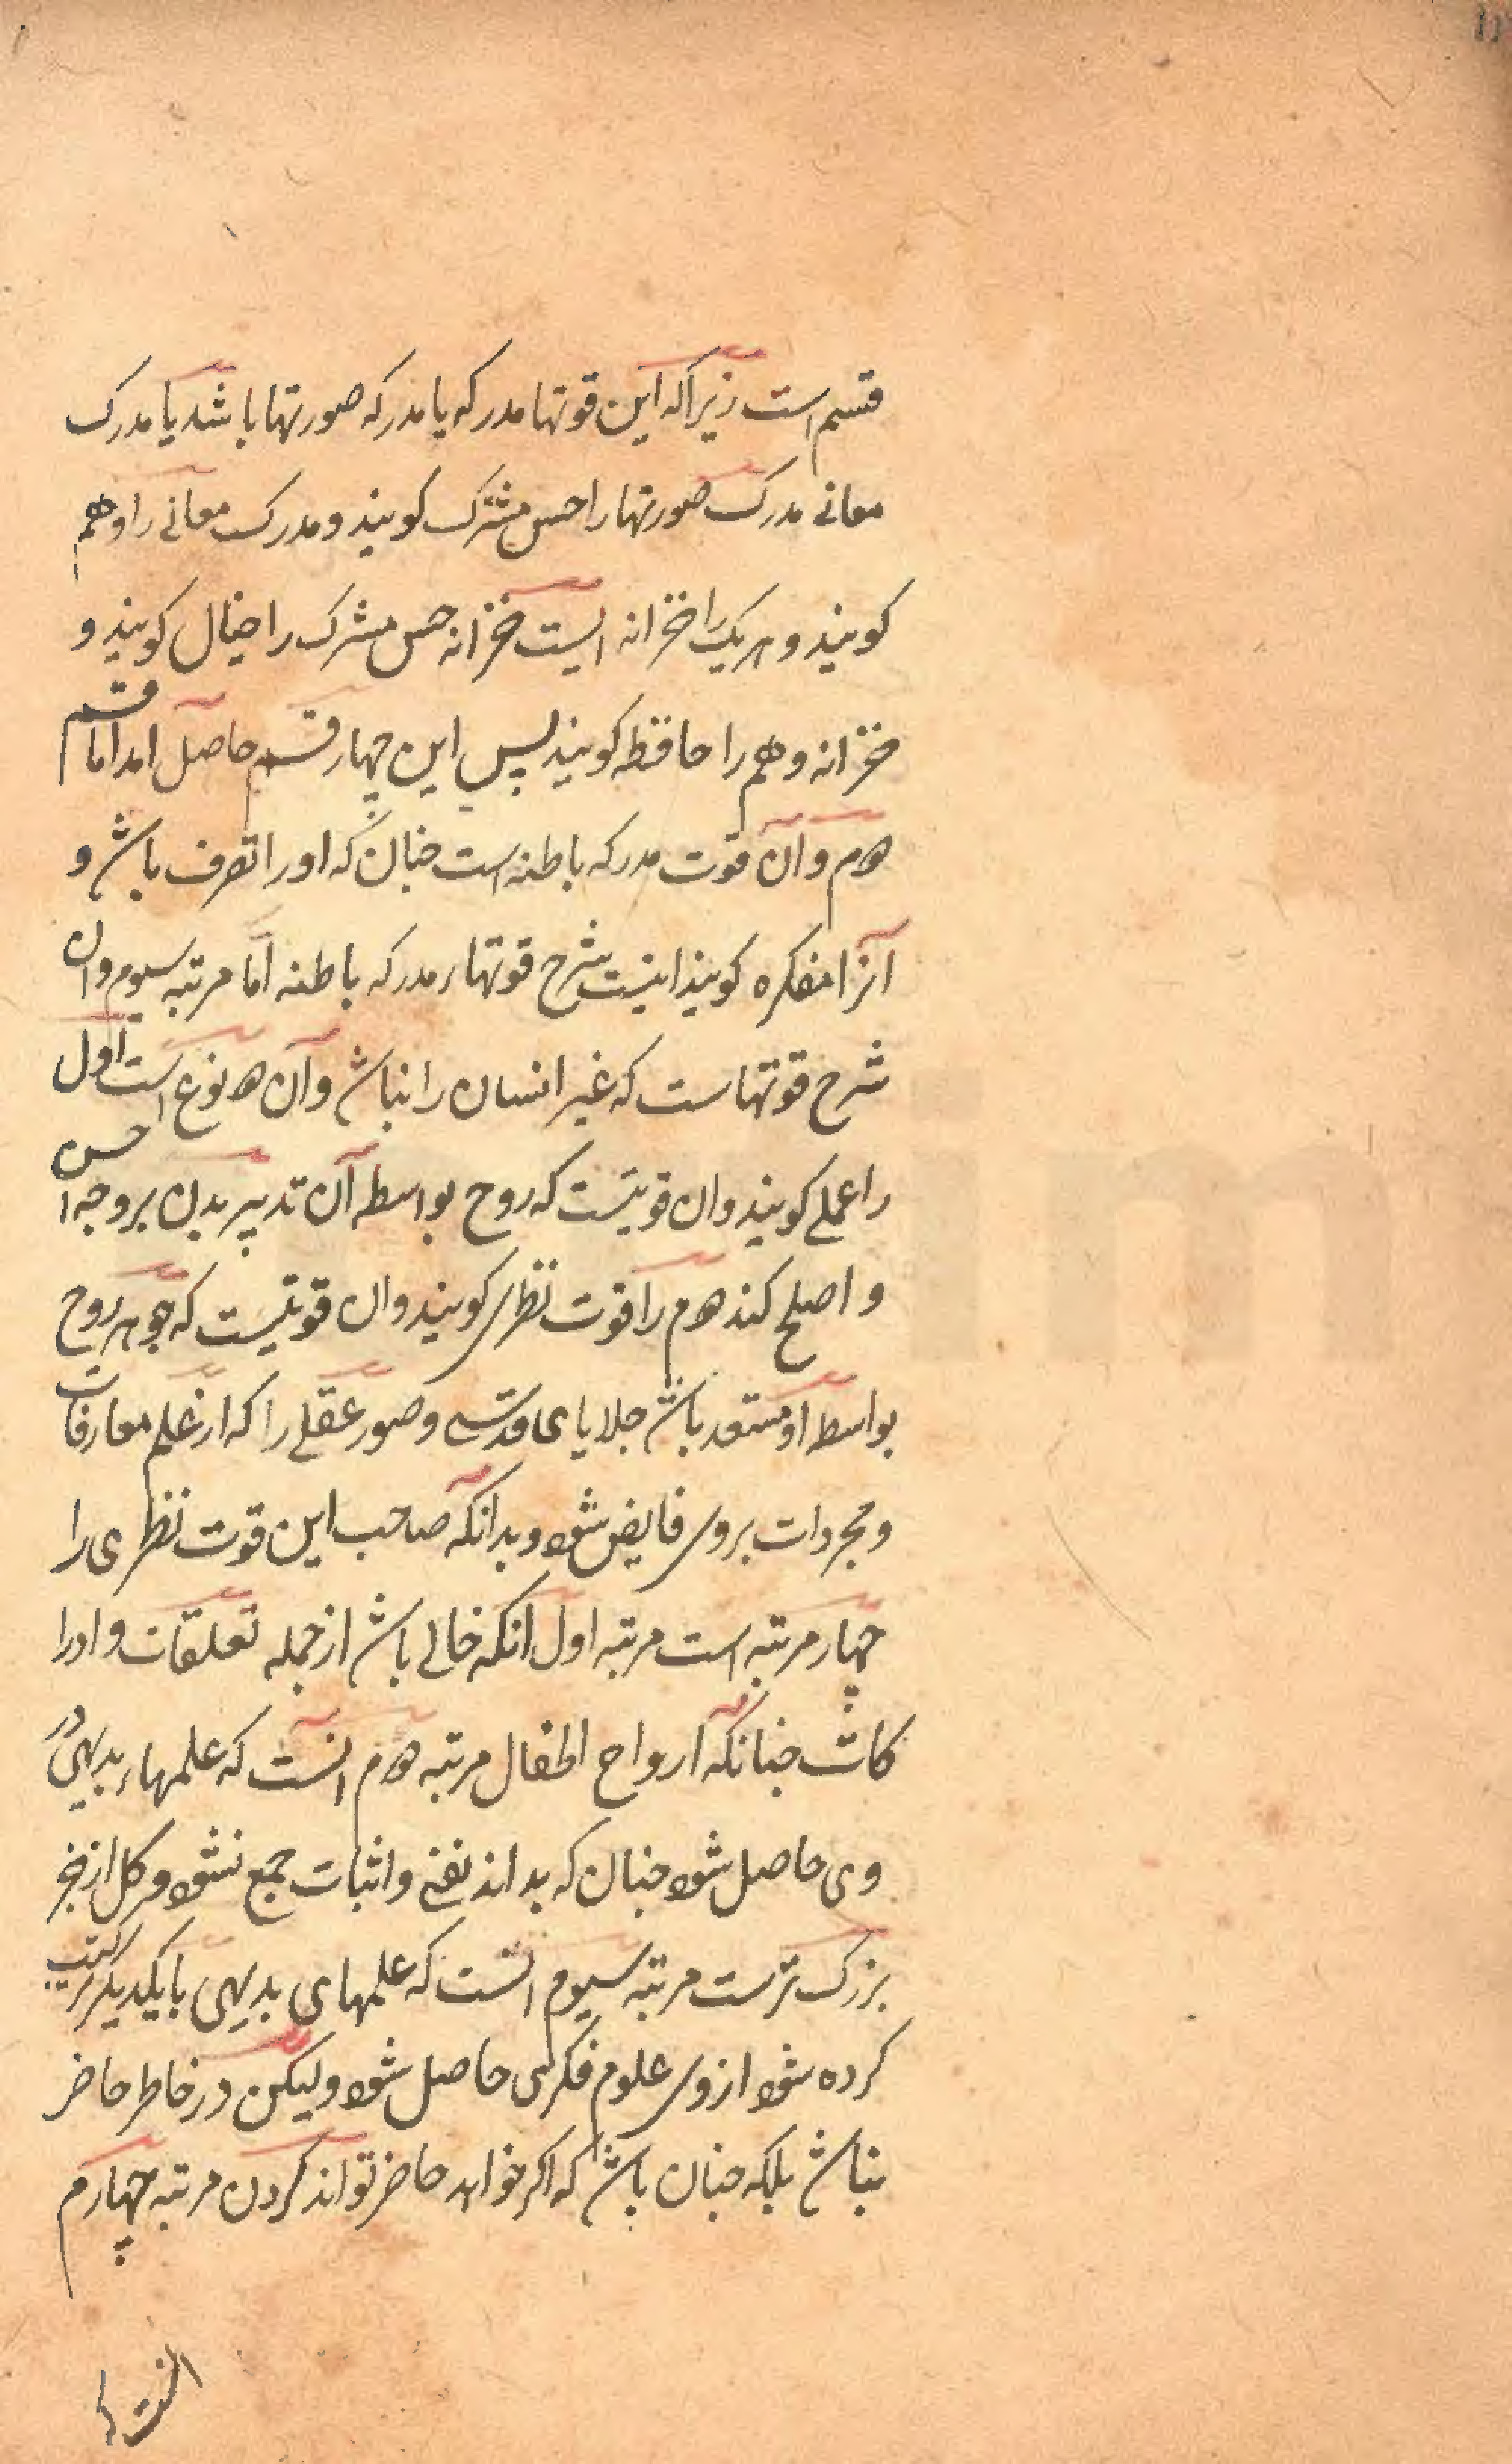 قسم است زیراکه این قوتها مدرکه یا مدرکه صورتها باشد یا مدرک
معانی مدرک صورتها را حس مشترک کویند و مدرک معانی را وهم
کویند و هریک را خزانه ایست خزانه حس مشترک را خیال کویند و
خزانه وهم را حافظه کویند پس این چهار قسم حاصل امد اما قسم
دوم و آن قوت مدرکه باطنه است چنان که او را تصرف باشد و
آنرا مفکره کویند اینست شرح قوتهاء مدرکه باطنه اما مرتبه سیوم وان
شرح قوتهاست که غیر انسان را نباشد وآن دو نوع است اول
را عملی کویند وان قوتیست که روح بواسطه آن تدبیر بدن بر وجه احسن
و اصلح کند دوم را قوت نظری کویند وان قوتیست که جوهر روح
بواسطه او مستعد باشد جلایای قدسی و صور عقلی را که از علم مفارقات
و مجردات بروی فایض شود وبدانکه صاحب این قوت نظری را
چهار مرتبه است مرتبه اول انکه خالی باشد از جمله تعلقات و ادرا
کات چنانکه ارواح اطفال مرتبه دوم انست که علمهاء بدیهی در
وی حاصل شود چنان که بداند نفی و اثبات جمع نشود و کل از جز
بزرک ترست مرتبه سیوم انست که علمهای بدیهی با یکدیکر ترکیب
کرده شود از وی علوم فکری حاصل شود ولیکن در خاطر حاضر
نباشد بلکه چنان باشد که اکر خواهد حاضر تواند کردن مرتبه چهارم